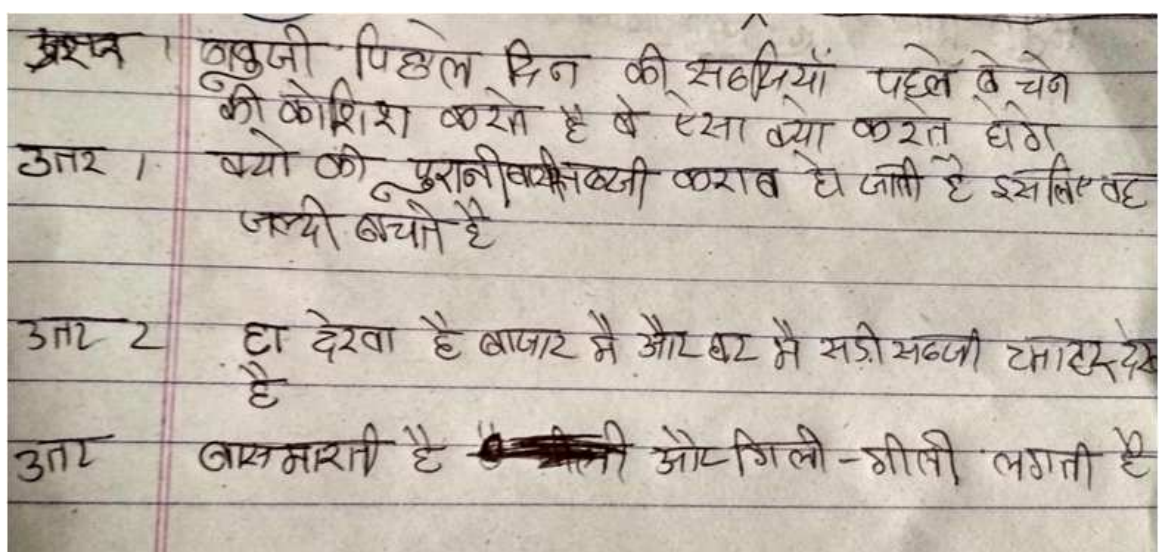 प्रशन । बाबुजी पिछले दिन की सब्जियाँ पहले बेचने
की कोशिश करते है वे ऐसा क्यो करते होगे
उतर । क्यो की पुरानी बासी सब्जी कराब हो जाती है इसलिए वह
जल्दी बेचते है
उतर 2 हा देखा है बाजार मै और घर मै सडी सब्जी टमाटर देख
है
उतर बास मारती है और गिली - गीली लगती है